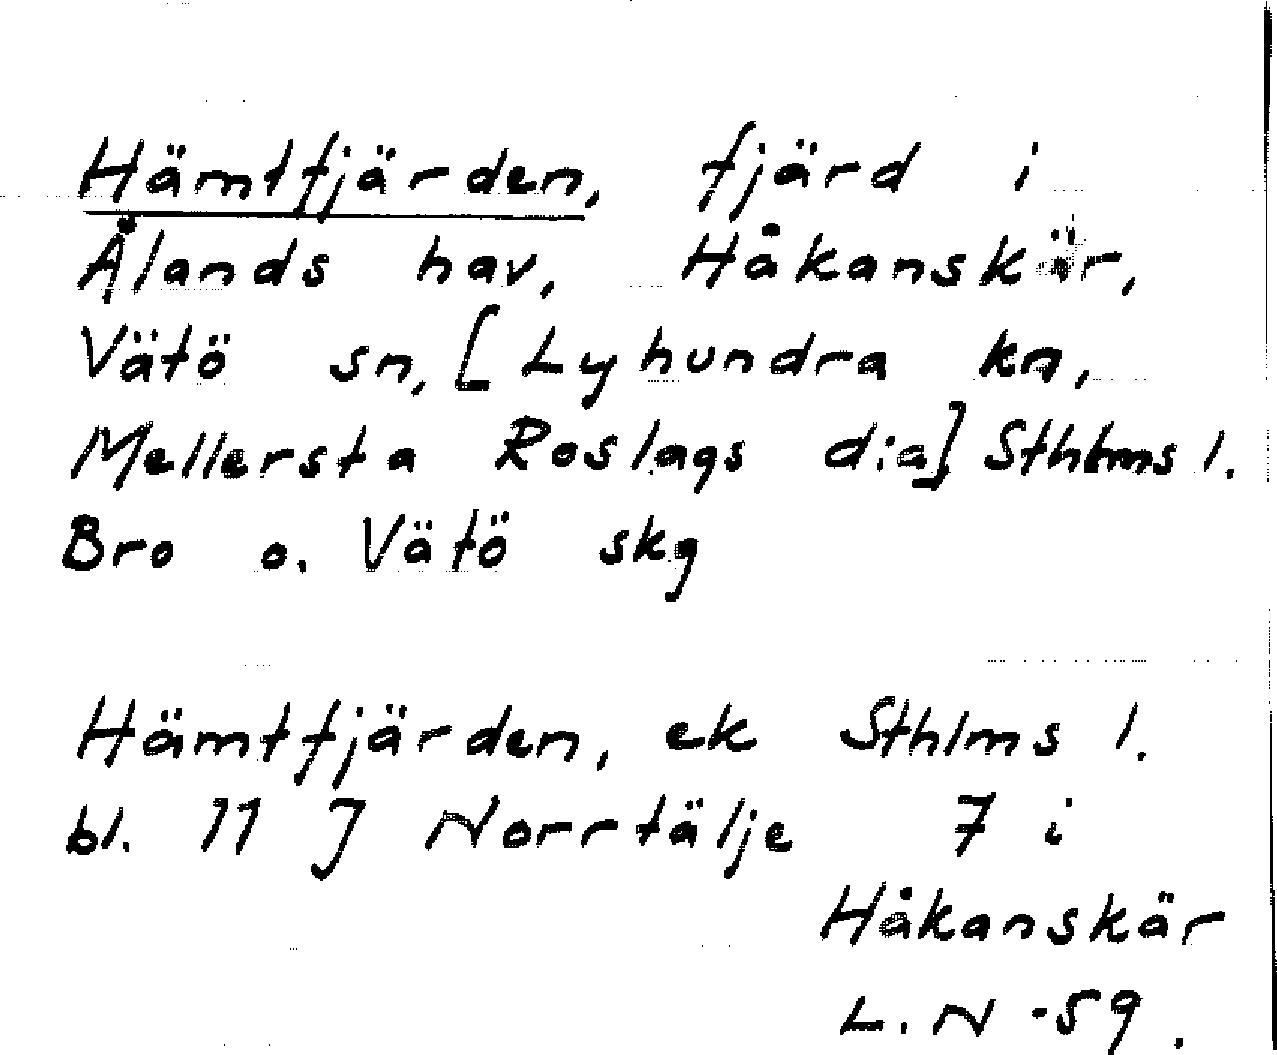 Hämtfjärden, fjärd i
Ålands hav, Håkanskär,
Vätö sn, [Lyhundra kn,
Mellersta Roslags dia] Sthlms l.
Bro o. Vätö skg
Hämtfjärden, ek Sthlms l.
bl. 11 J Norrtälje 7 i
Håkanskär
L. N -59.